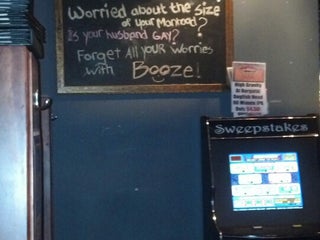 Worried about the size
of your Manhood?
Is your husband GAY?
Forget All your worries
with Booze!
High Gravity
At Bargain!
Dogfish Head
90 Minute IPA
Only
Sweepstakes